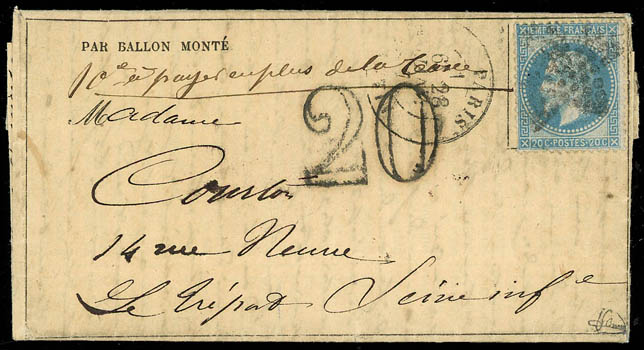 PAR BALLON MONTÉ
10c à payer en plus de la taxe
Madame
20
PARIS
28
EMPIRE FRANÇAIS
20 C · POSTES · 20 C
14 rue Neuve
Le Tréport Seine infe